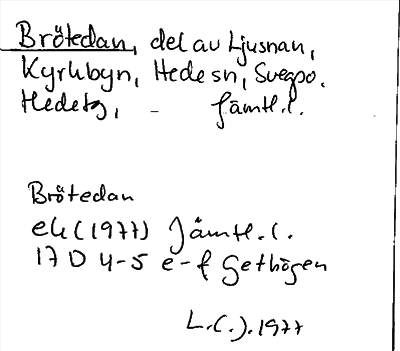 Brötedan, del av Ljusnan,
Kyrkbyn, Hedesn, Svegpo.
Hedetg, - Jämtl.l.
Brötedan
ek (1977) Jämtl.l.
17 D 4-5 e-f Getbögen
1977